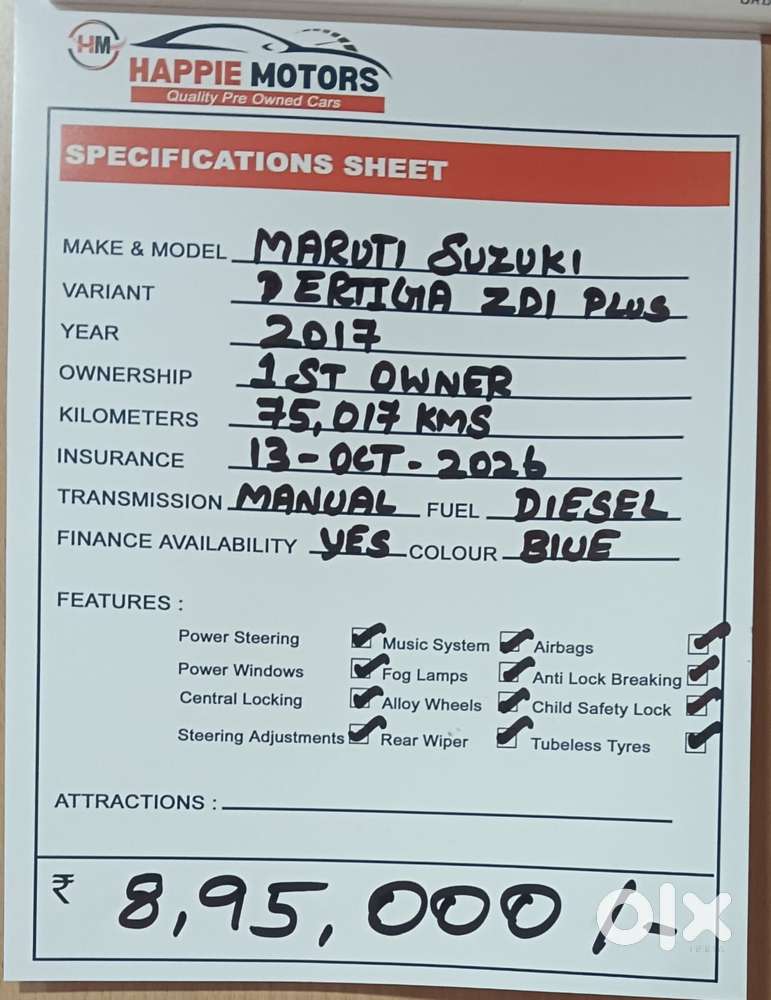 HM
HAPPIE MOTORS
Quality Pre Owned Cars
SPECIFICATIONS SHEET
MAKE & MODEL MARUTI SUZUKI
VARIANT ERTIGA ZDI PLUS
YEAR 2017
OWNERSHIP 1ST OWNER
KILOMETERS 75,017 KMS
INSURANCE 13-OCT-2026
TRANSMISSION MANUAL FUEL DIESEL
FINANCE AVAILABILITY YES COLOUR BLUE
FEATURES :
Power Steering Music System Airbags
Power Windows Fog Lamps Anti Lock Breaking
Central Locking Alloy Wheels Child Safety Lock
Steering Adjustments Rear Wiper Tubeless Tyres
ATTRACTIONS :
₹ 8,95,000/-
olx